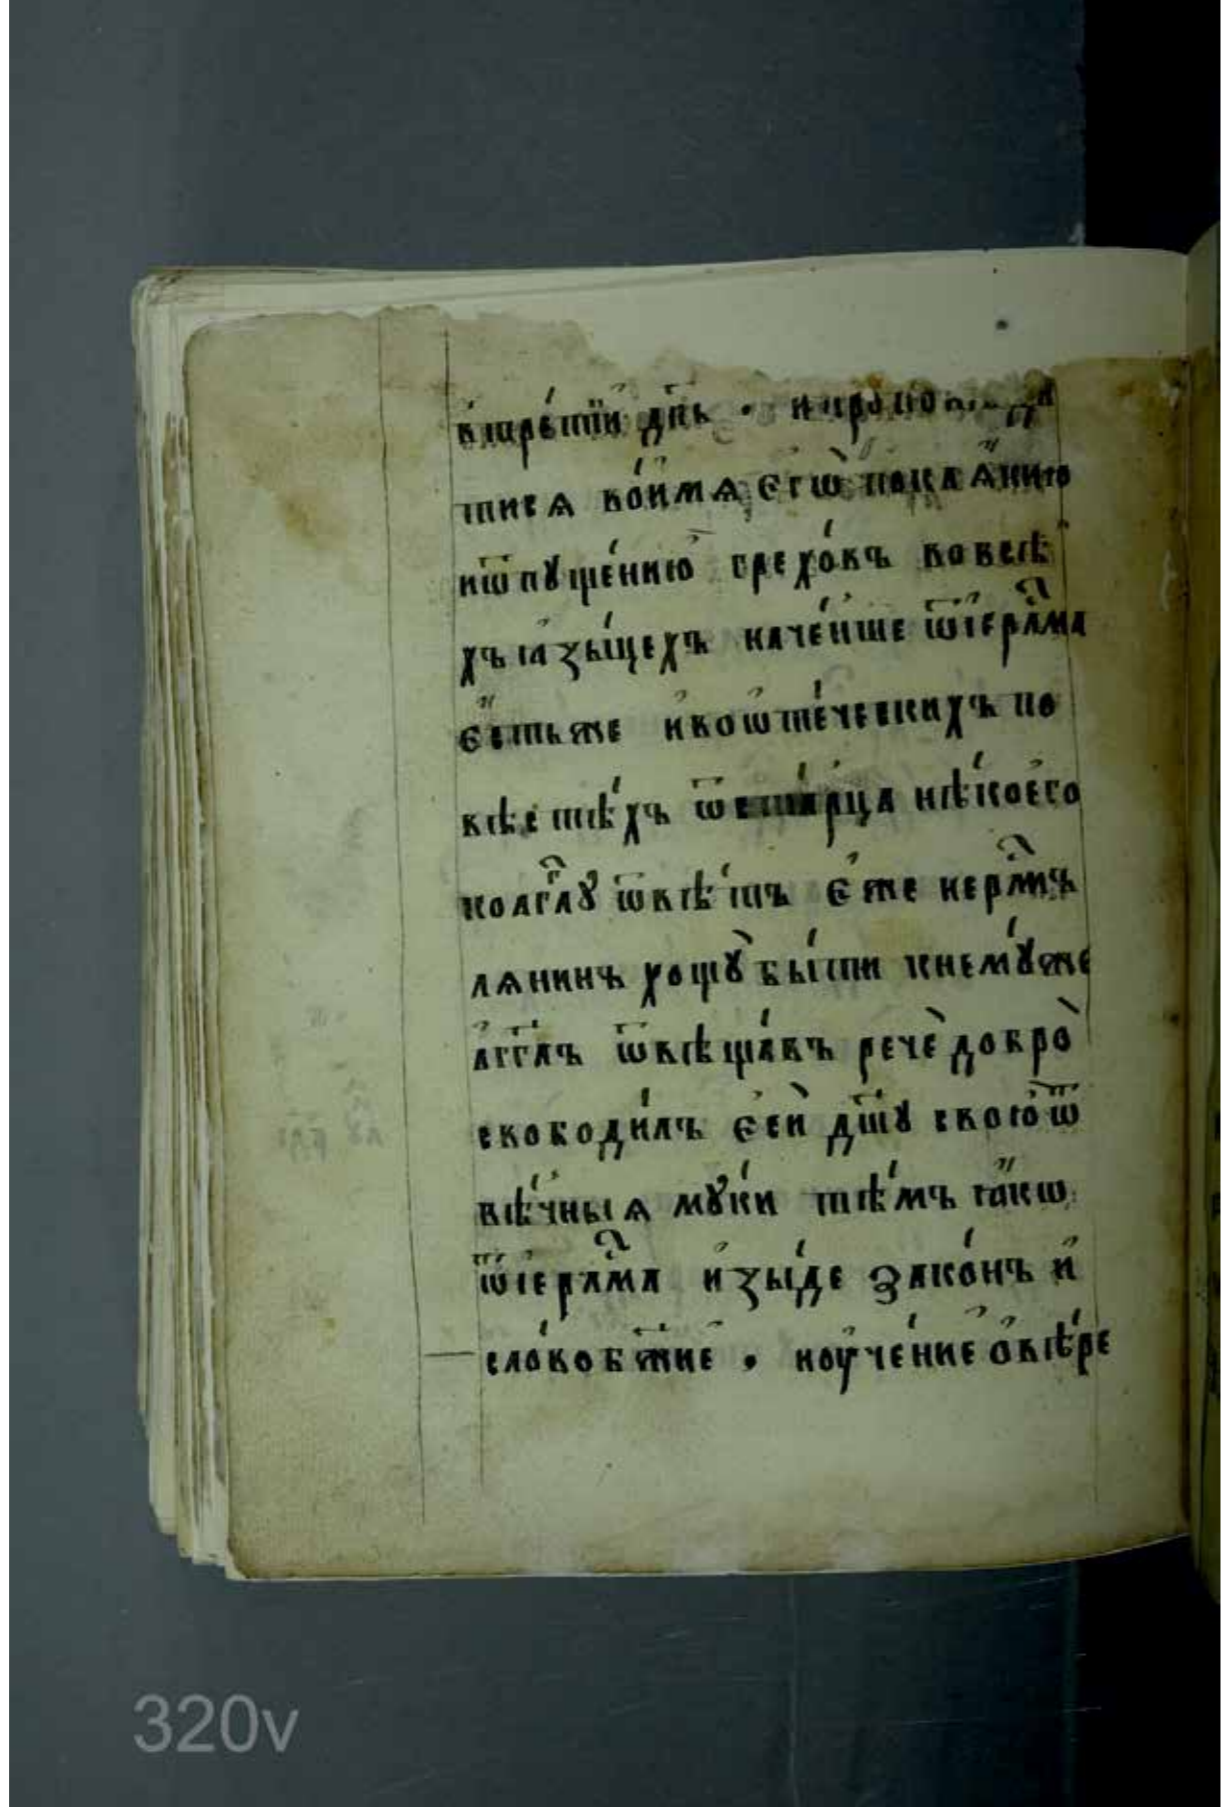 втре́тїи дн҃ь · и проповѣда
тисѧ во́имѧ єгѡ̀ покаѧ́нию
иѿпуще́нию грехо́въ вовсѣ́
хъ ꙗзы́цехъ наче́нше ѿіерл҃има
є҆́стьже и҆воѡте́ческихъ по
вѣстѣ́хъ ѿста́рца нѣ́коего
коагг҃лꙋ ѿвѣ́тъ є҆́же иерл҃имъ
лѧнинъ хощꙋ̀ бы́ти кнемꙋ́же
а҆гг҃лъ ѿвѣща́въ речѐ добро̀
свободи́лъ єсѝ дш҃у свою̀ ѿ
вѣ́чныѧ мꙋ́ки тѣ́мъ ꙗ҆́кѡ
ѿіерл҃има и҆зы́де зако́нъ и҆
сло́вобж҃ие · иоуче́ние ѡ҆вѣ́ре
320v